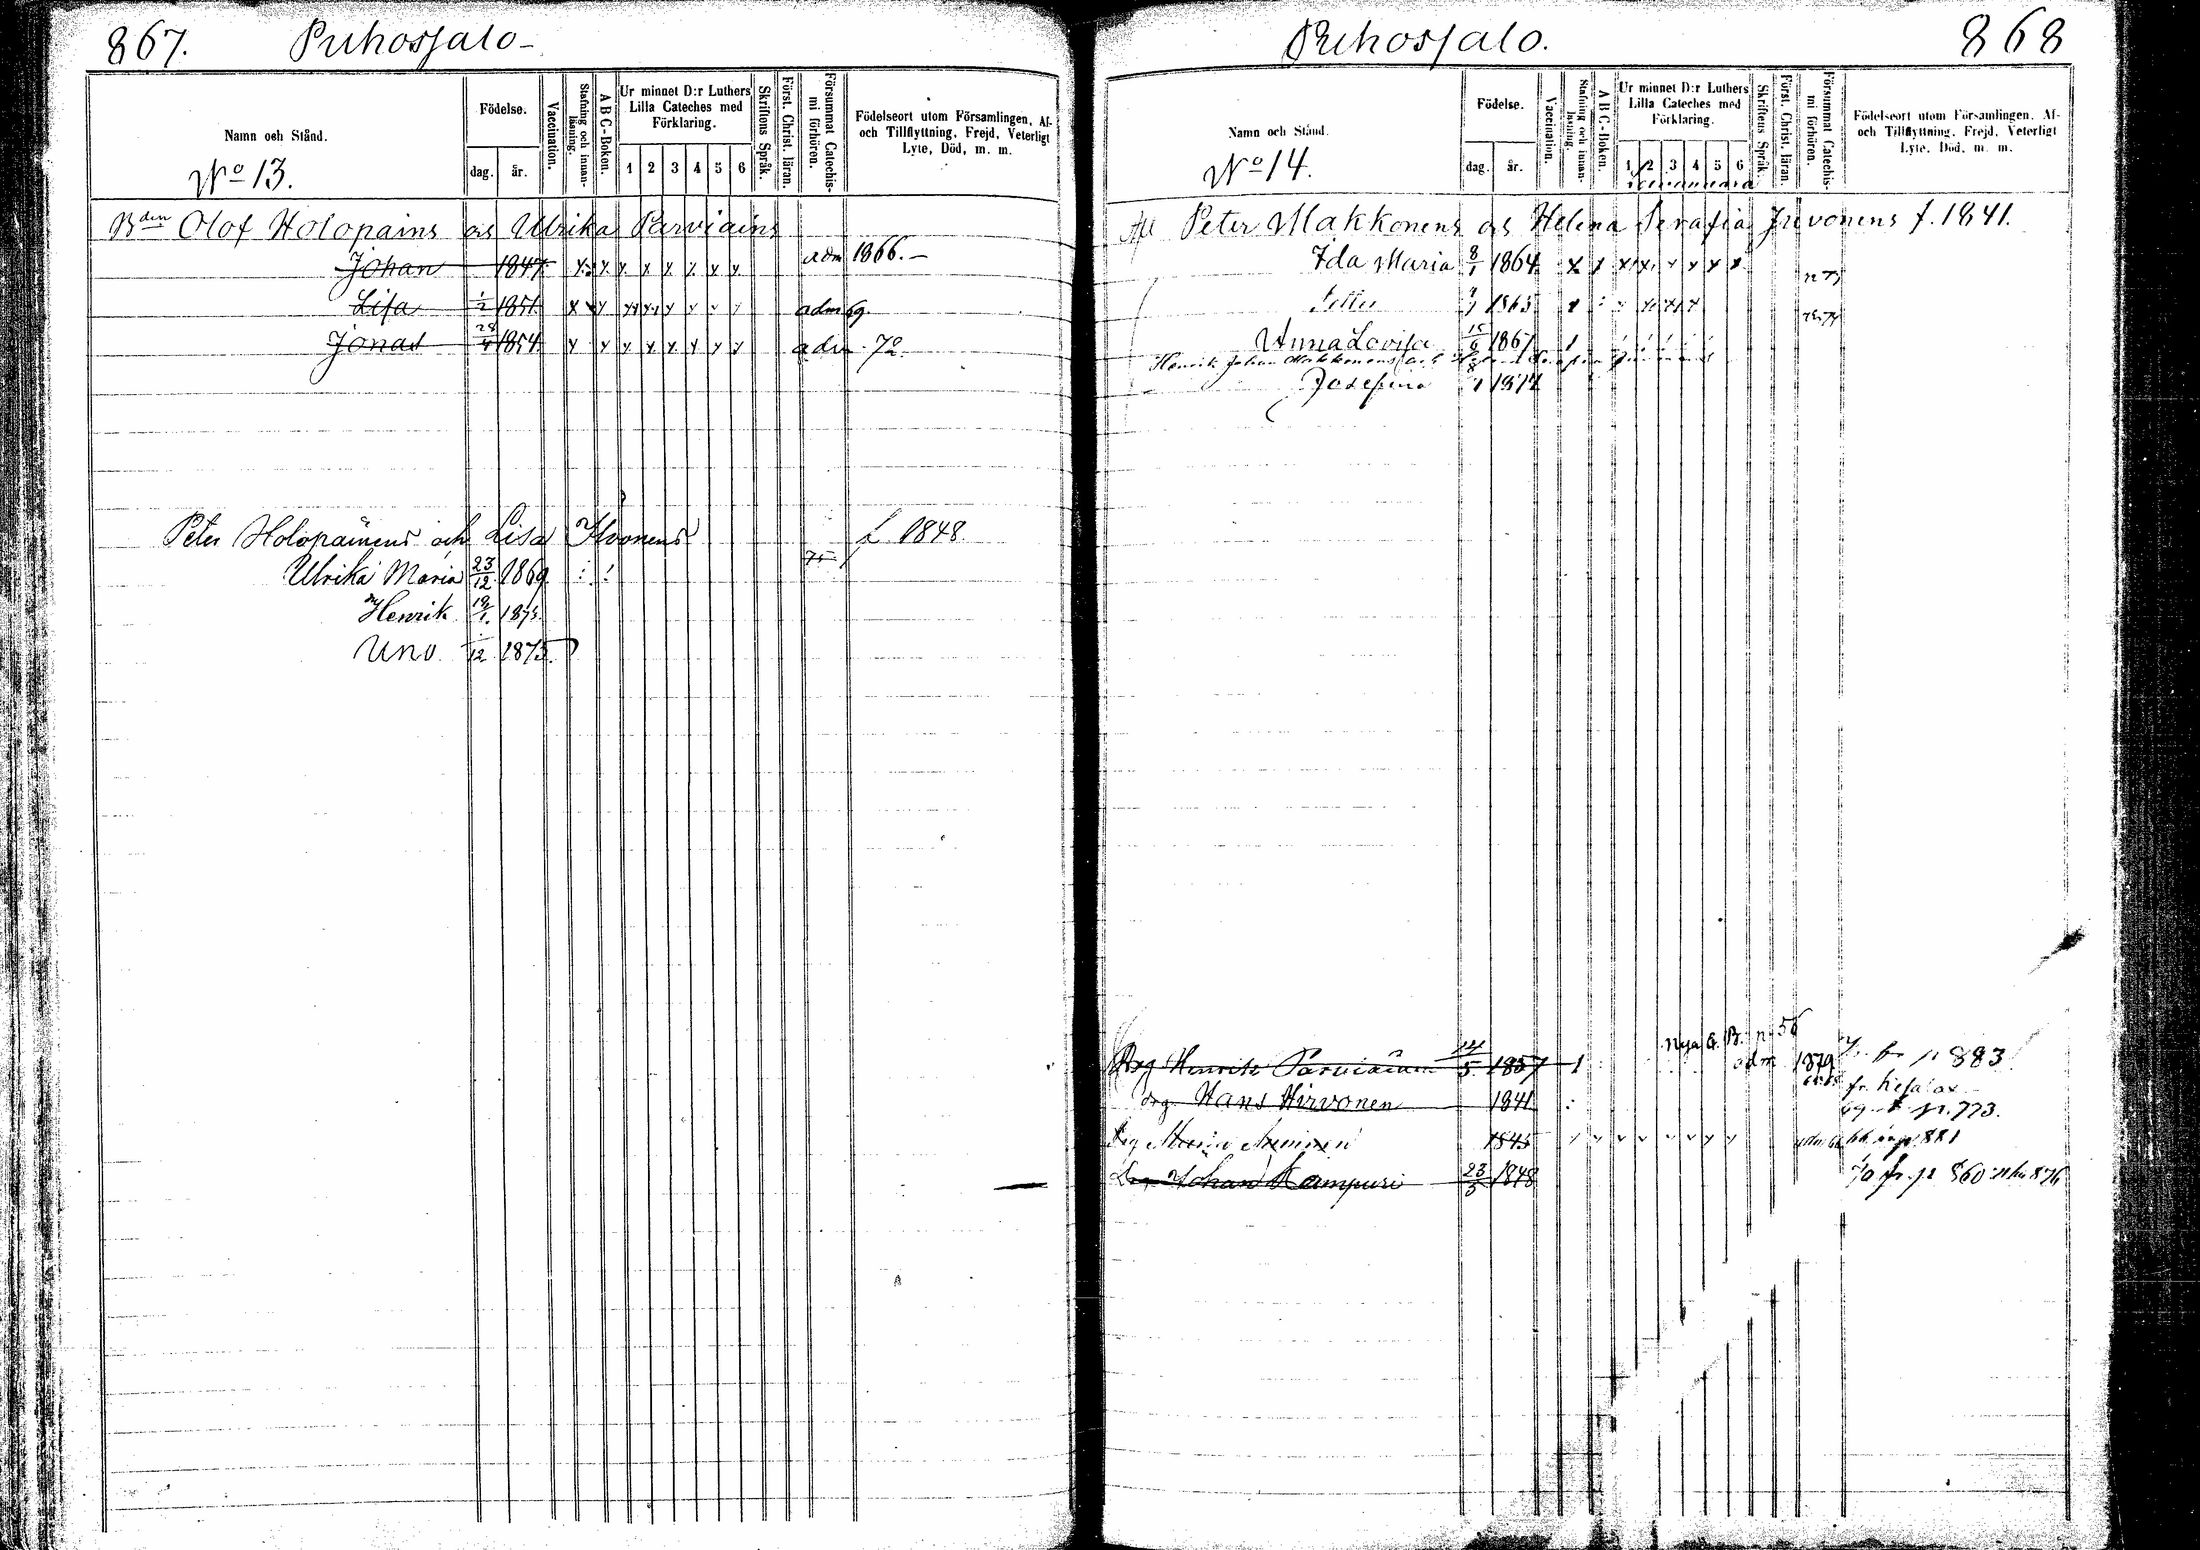 867. Puhossalo
Namn och Stånd.
No 13.
Födelse.
dag. år.
Vaccination.
Stafning och innanläsning.
A B C-Boken.
Ur minnet D:r Luthers Lilla Cateches med Förklaring.
1 2 3 4 5 6
Skriftens Språk.
Först. Christ. läran.
Försummat Catechismi förhören.
Födelseort utom Församlingen, Af- och Tillflyttning, Frejd, Veterligt Lyte, Död, m. m.
Bden Olof Holopains o s Ulrika Parviains
Johan 1847 x x x x x x x x adm 1866.
Lisa 1/2 1851 x x x x x x x x adm 69.
Jonas 28/4 1854 x x x x x x x x adm 72.
Peter Holopainens och Lisa Ilvonens f. 1848
Ulrika Maria 23/12 1869 75
Henrik 1873.
Uno 12 1875.
Puhossalo. 868
Namn och Stånd.
No 14.
Födelse.
dag. år.
Vaccination.
Stafning och innanläsning.
A B C-Boken.
Ur minnet D:r Luthers Lilla Cateches med Förklaring.
1 2 3 4 5 6
Skriftens Språk.
Först. Christ. läran.
Försummat Catechismi förhören.
Födelseort utom Församlingen, Af- och Tillflyttning, Frejd, Veterligt Lyte, Död, m. m.
Peter Makkonens o s Helena Serafia f. 1841.
Ida Maria 8/1 1864 x x x x x x x x
1865
Anna Lovisa 15/6 1867
Henrik Johan Makkonens
Josefina
Nya G. B. p. 56
Drg Henrik Parviainen 14/5 1857 adm 1879 p 883
drg Hans Hirvonen 1841 p. 773.
Maria 1845 881
Drg Johan Kampuri 23/5 1848 fr. p 860 876